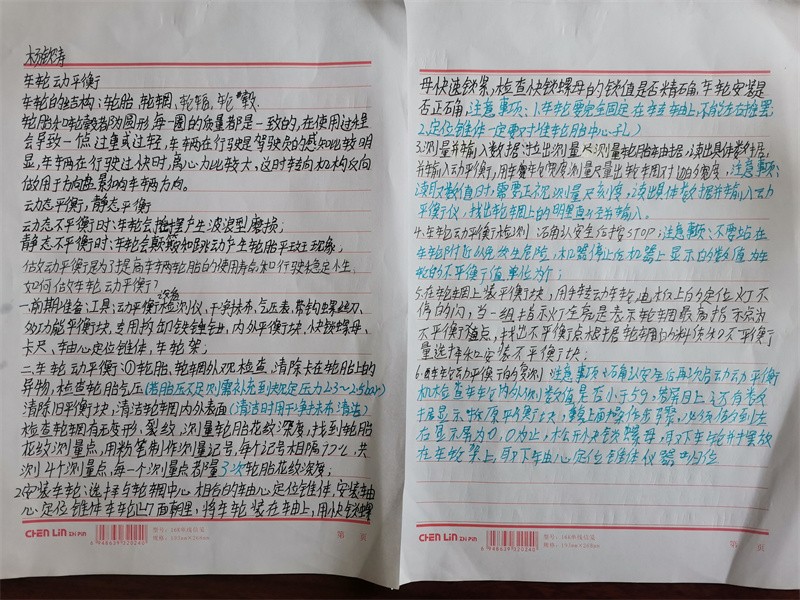 杨钦涛
车轮动平衡
车轮的结构：轮胎、轮辋、轮辐、轮毂.
轮胎和轮毂都为圆形每一圈的质量都是一致的，在使用过程
会导致一点过重或过轻，车辆在行驶是驾驶员的感知比较明
显，车辆在行驶过快时，离心力比较大，这时转向机构反向
做用于方向盘影响车辆方向.
动态平衡，静态平衡
动态不平衡时：车轮会摇摆产生波浪型磨损；
静态不平衡时：车轮会颠颠和跳动产生轮胎平斑现象，
做动平衡是为了提高车辆轮胎的使用寿命和行驶稳定性.
如何做车轮动平衡？
一.前期准备：工具：动平衡检测仪、干净抹布、气压表、带钩螺丝刀、
多功能平衡块，专用拘卸铁锤，内外平衡块，快锁螺母、
卡尺、车轴心定位锥体，车轮架；
二.车轮动平衡：①轮胎、轮辋外观检查，清除卡在轮胎上的
异物，检查轮胎气压(若胎压不足则需补充到规定压力2.3～2.5bar)
清除旧平衡块，清洁轮辋内外表面(清洁时用干净抹布清洁)
检查轮辋有无变形，裂纹，测量轮胎花纹深度，找到轮胎
花纹测量点，用粉笔制作测量记号，每个记号相隔 共
测4个测量点，每一个测量点都量3次轮胎花纹深度；
2.安装车轮：选择与轮辋中心相合的车轴心定位锥体，安装轴
心定位锥体车轮 面朝里，将车轮装在车轴上，用快锁螺
CHEN LIN
型号：16K单线信笺
规格：193mm×268mm
6 948639 020240
第 页
母快速锁紧，检查快锁螺母的锁值是否精确，车轮安装是
否正确，注意事项：1.车轮要完全固定在车轴上，不能左右摇摆
2.定位锥体一定要对准轮胎中心孔)
3.测量并输入数据：拉出测量尺测量轮胎车轴距，读出具体数据，
并输入动平衡，用车 宽度测量尺量出轮辋 的宽度，注意事项：
读取数值时，需要正视测量尺刻度，读出具体数据并输入动
平衡仪，找出轮辋上的明星直径并输入.
4.车轮动平衡检测：确认安全后按STOP；注意事项：不要站在
车轮附近以免发生危险，机器停止后机器上显示的数值为车
轮的不平衡值，单位为g；
5.在轮辋上装平衡块，用手转动车轮，面板上的定位灯不
停的闪，当一组指示灯全亮是表示轮辋最高指示点为
不平衡点，找出不平衡点根据轮辋的材料和不平衡
量选择和安装不平衡块；
6.做车轮动平衡的复测：注意事项：确认安全后再次启动动平衡
机检查车轮内外侧数值是否小于5g，若屏幕上还有参数
 操作步骤，必须做到左
右显示屏为0，0为止，松开快锁螺母，取下车轮并摆放
在车轮架上，取下车轴心定位锥体仪器归位.
CHEN LIN
型号：16K单线信笺
规格：193mm×268mm
6 948639 020240
第 页